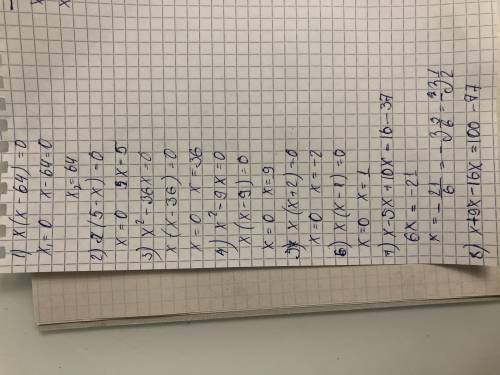 1) x(x-64)=0
x₁=0 x-64=0
x₂=64
2) x(5-x)=0
x=0 x=5
3) x²-36x=0
x(x-36)=0
x=0 x=36
4) x²-9x=0
x(x-9)=0
x=0 x=9
5) x(x+2)=0
x=0 x=-2
6) x(x-1)=0
x=0 x=1
7) x-5x+10x=16-37
6x=-21
x=-21/6=-3 3/6=-3 1/2
8) x+9x-16x=100-97